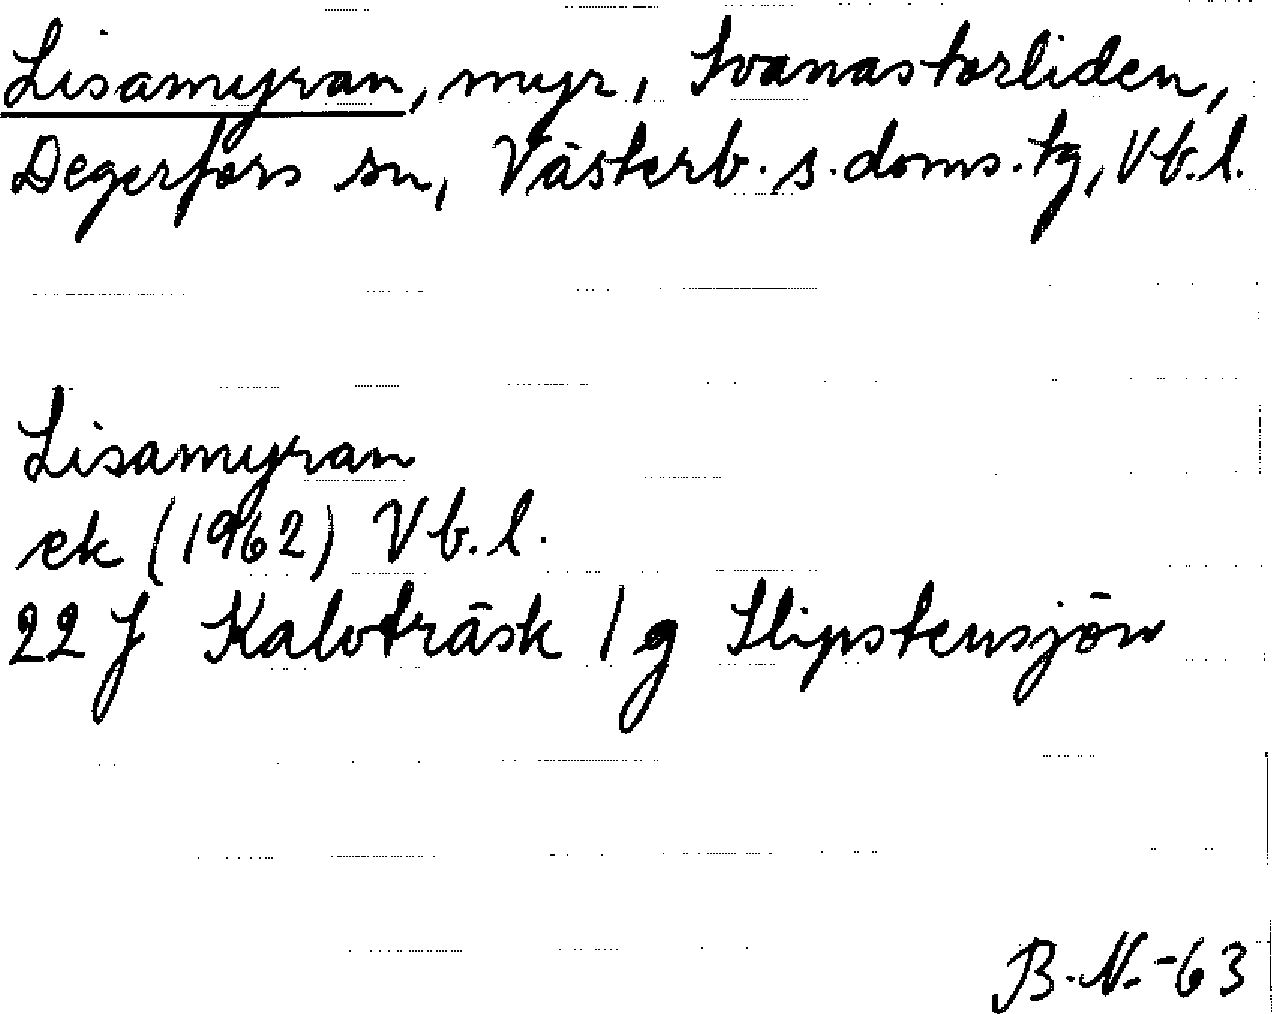 Lisamyran, myr, Svanastorliden,
Degerfors sn, Västerb. s. doms. tg, Vb. l.
Lisamyran
ek (1962) Vb. l.
22 J Kalvträsk 1 g Slipstensjön
B. N. -63